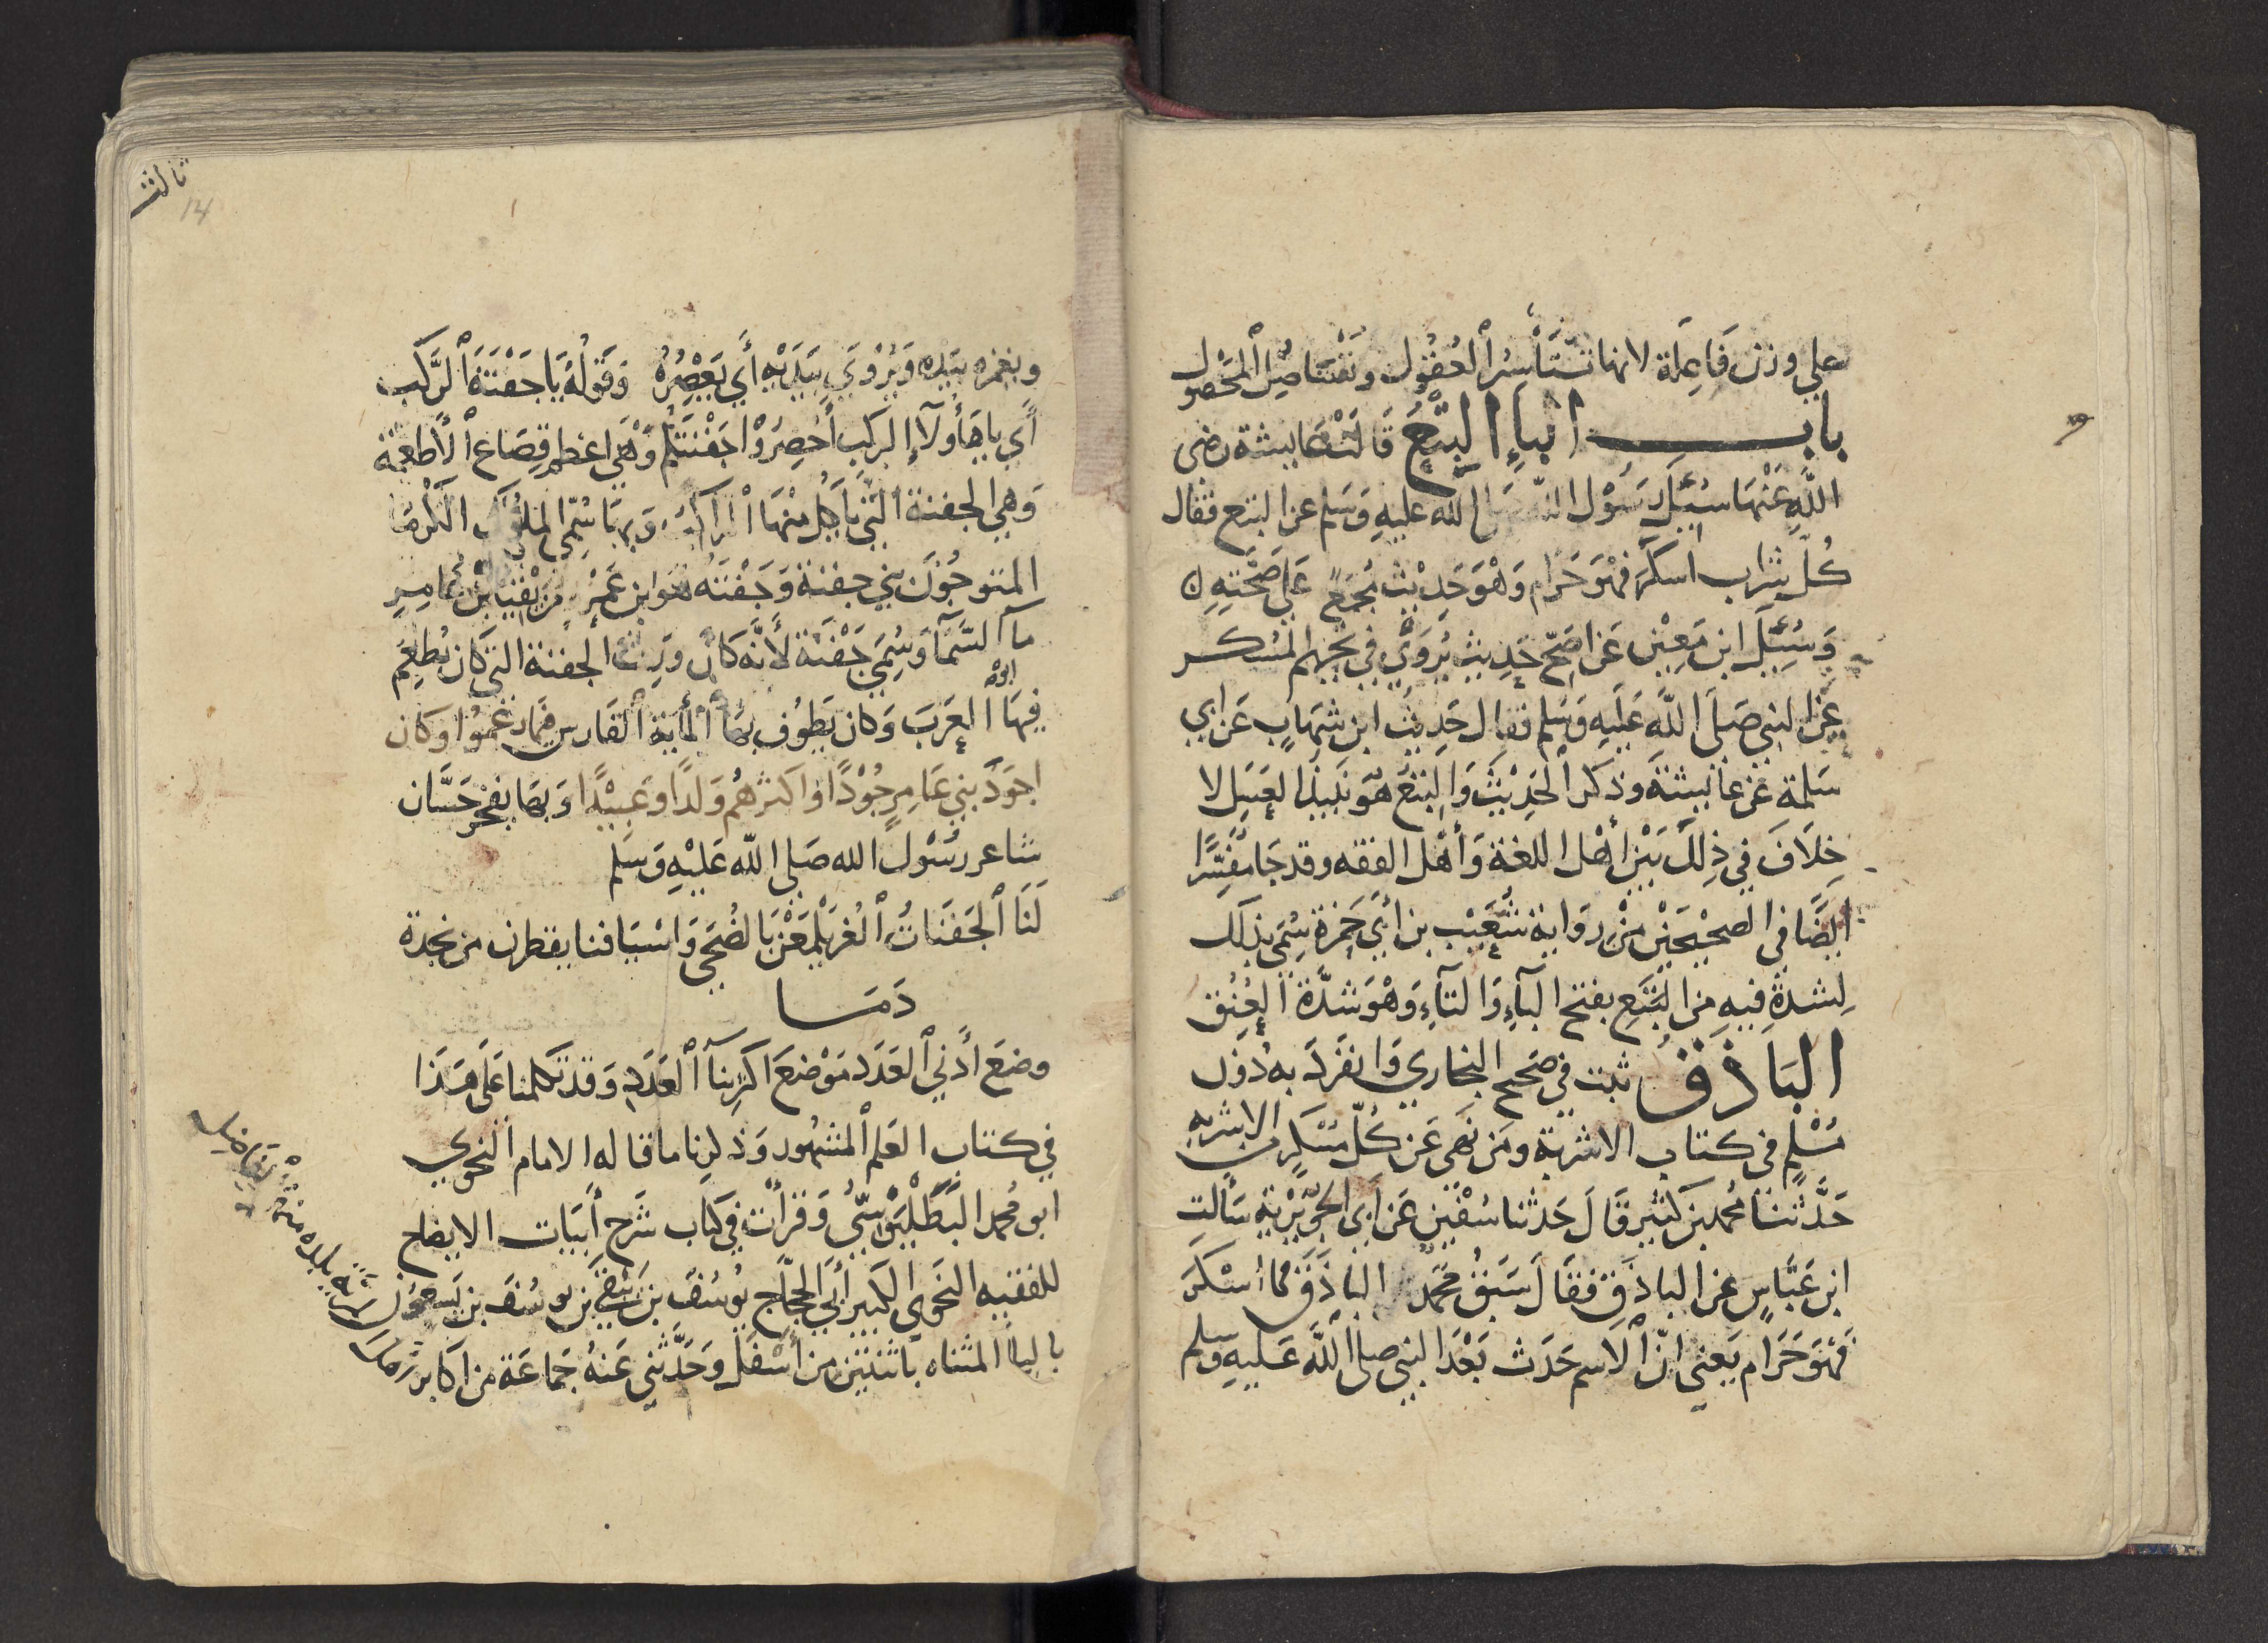 على وزن فَاعِلَة لانها تَسْتَأْسِرُ العُقُول وتَفْتَاصِلُ المَحْصول
باب الباء البِتْعُ قَالَتْ عَايشة رضى
اللَّه عَنْهَا سُئِلَ رَسُوْل اللّه صَلى اللّه عليهِ وَسَلم عن البتع فقال
كُلّ شراب اسكَرَ فهْوَ حَرَام وَهْوَ حَدِيْث مُجمَعٌ عَلى صحَّتِهِ ن
وَسُئِلَ ابن مَعِيْن عَن اصَحّ حَدِيث يُرْوَى في تحريم المُسْكر
عَن النبي صَلى اللَّه عَلَيهِ وَسَلم فقال حَدِيثُ ابن شِهَابٍ عَن ابي
سَلمة عَن عَايشة وذكر الحَدِيْثَ وَالبتعُ هُوَ نَبِيذ العَسَل لا
خِلَافَ في ذِلكَ بَيْن أَهْل اللغة وَأَهْل الفقه وقد جَا مُفَسَّرًا
ايضًا في الصحيْحَيْن مِنْ روَاية شُعَيْب بن أَبِي حَمزة سُمّي بذلك
لِشدةٍ فيهِ من البَتَع بفتح البآءِ وَالتآءِ وَهْوَ شدَّة العُنُق
البَاذَقُ ثبت في صَحيح البخاري وَانفَردَ به دُوْن
مُسْلمٍ في كتاب الاشربة ومَن نَهَى عَن كُلّ مُسْكرٍ من الاشربه
حَدَّثَنَا مُحمد بن كَثير قَالَ حَدثنا سُفْيٰن عَن أَبي الجُوَيْرِية سَأَلت
ابن عَبَّاسٍ عن الباذَقِ فقَالَ سَبَقَ مُحَمَّدٌ الباذَقَ فما أسْكرَ
فَهْوَ حَرَام يَعني انّ الاسم حَدَث بَعْدَ النبي صلى اللَّه عَليهِ وسلم
ثالث
14
ويغمزه بيَدِه وَيُرْوَى بيَدَيْهِ أَي يَعْصِرُهُ وَقولُهُ يَا جَفْنَةَ الرَّكب
أَي يا هَأُولآءِ الرَكب أَحْضِرُوْا جَفْنَتَكُم وَهْي اعظم قِصَاع الأَطعمة
وَهي الجفنة التي يَأكُل مِنْهَا الراكب وَبهَا سُمّي الملُوْك الكرمَا
المتوجُوْن بني جفنة وَجَفْنَه هُوَ ابن عَمْرو مُزَيْقيَا بْن عَامِرٍ
مآ السَّمآ وَسُمِّيَ جَفْنَة لأَنّه كَان وَرِثَ الجفنة التي كَان يُطعِم
ابوْه
فِيهَا العَرَبَ وَكان يَطُوْف بهَا المأية الفَارس فيمَا زعَمُوا وَكان
اجوَدَ بني عَامِرٍ جُوْدًا وَاكثرهُم وَلدًا وَعَبِيْدًا وَبهَا يفخر حَسَّان
شاعر رسُوْل الله صَلى اللّه عَليْهِ وَسَلم
لَنَا الجَفنَاتُ الغُر يَلْمَعْنَ بَالضُحَى وَاسْيَافنا يقطرن من نجدة
دَمَا
وضعَ أَدنَى العَدَد مَوْضعَ اكثر بنآ العَدَدِ وَقدْ تَكلمنا عَلى هَذَا
في كتاب العَلم المشهُور وَذكرنا ما قاله الامام النحوي
ابو مُحمد البَطَلْيَوْسيّ وَقرأْت في كتاب شَرح أَبيَات الايضاح
للفقيه النَحوي الكبير أَبي الحجّاج يُوسُفَ بن يَبْقى بن يوسُفَ بن يَسعُوْن
باليا المثناه باثنتين من أَسْفَل وَحَدَّثني عَنهُ جَمَاعَة من اكابر